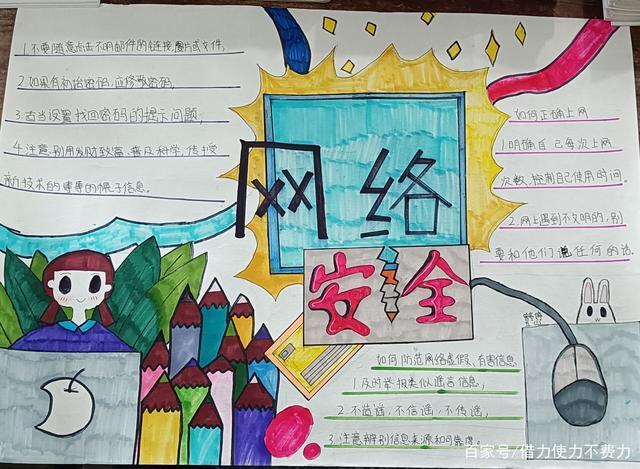 1.不要随意点击不明邮件的链接、图片或文件,
2.如果有初始密码,应修改密码,
3.适当设置找回密码的提示问题,
4.注意别用发财致富、普及科学、传授
新技术的幌子信息。
网络
安全
如何正确上网
1.明确自己每次上网
次数,控制自己使用时间。
2.网上遇到不文明的,别
要和他们说任何的话。
如何防范网络虚假、有害信息
1.及时举报类似谣言信息,
2.不造谣,不信谣,不传谣,
3.注意辨别信息来源和可靠度。
百家号/借力使力不费力